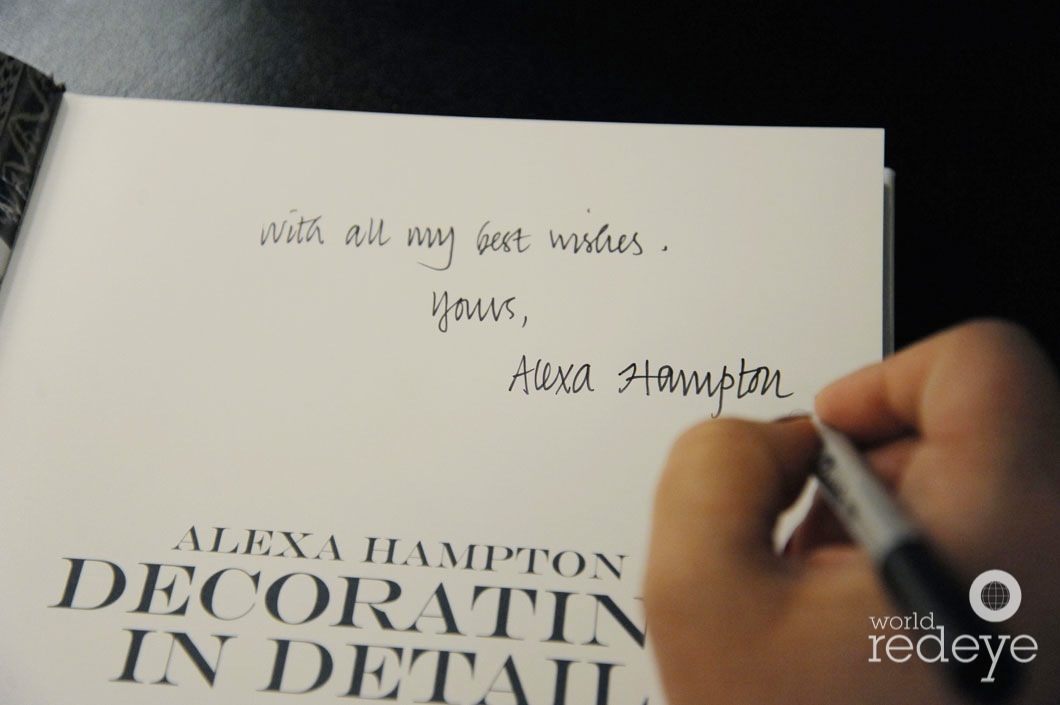 with all my best wishes.
Yours,
Alexa Hampton
ALEXA HAMPTON
DECORATIN
IN DETAIL
world
redeye